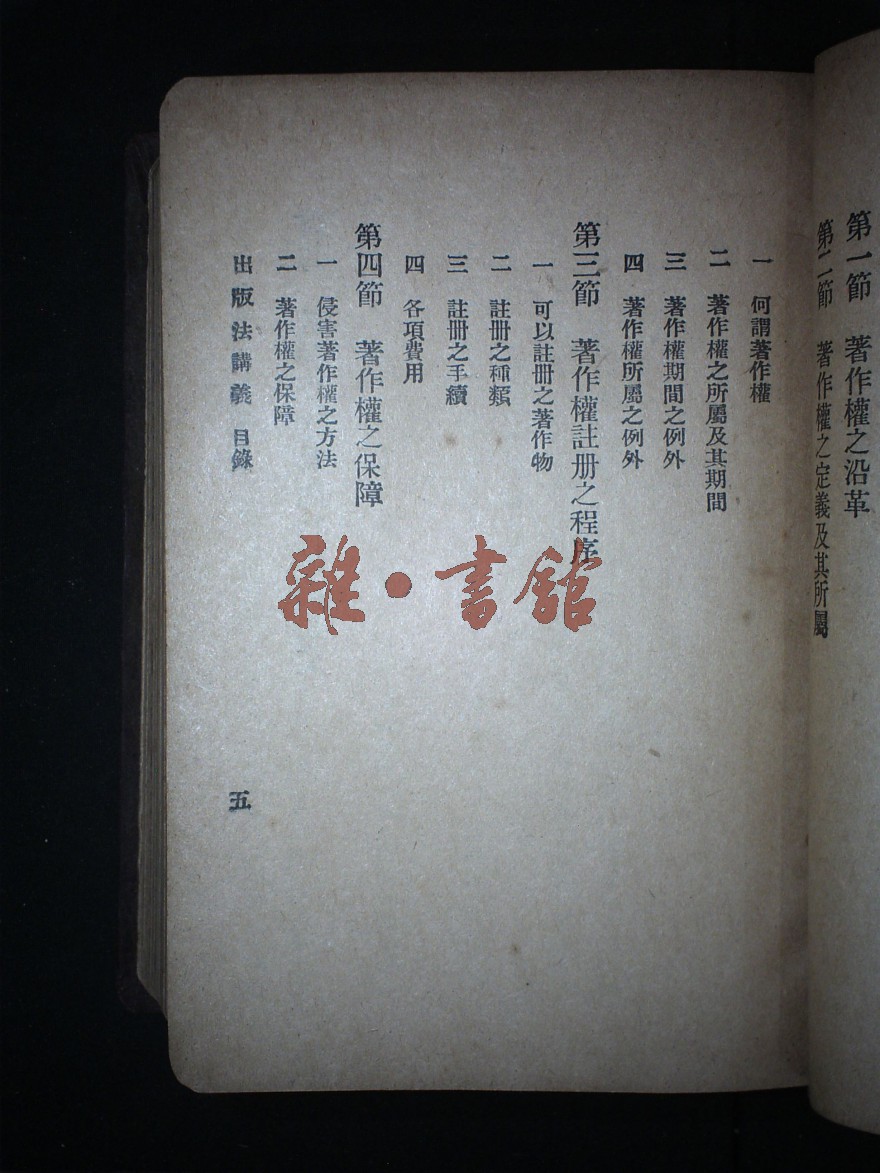 第一節　著作權之沿革
第二節　著作權之定義及其所屬
一　何謂著作權
二　著作權之所屬及其期間
三　著作權期間之例外
四　著作權所屬之例外
第三節　著作權註册之程序
一　可以註册之著作物
二　註册之種類
三　註册之手續
四　各項費用
第四節　著作權之保障
一　侵害著作權之方法
二　著作權之保障
出版法講義　目錄
五
雜·書館